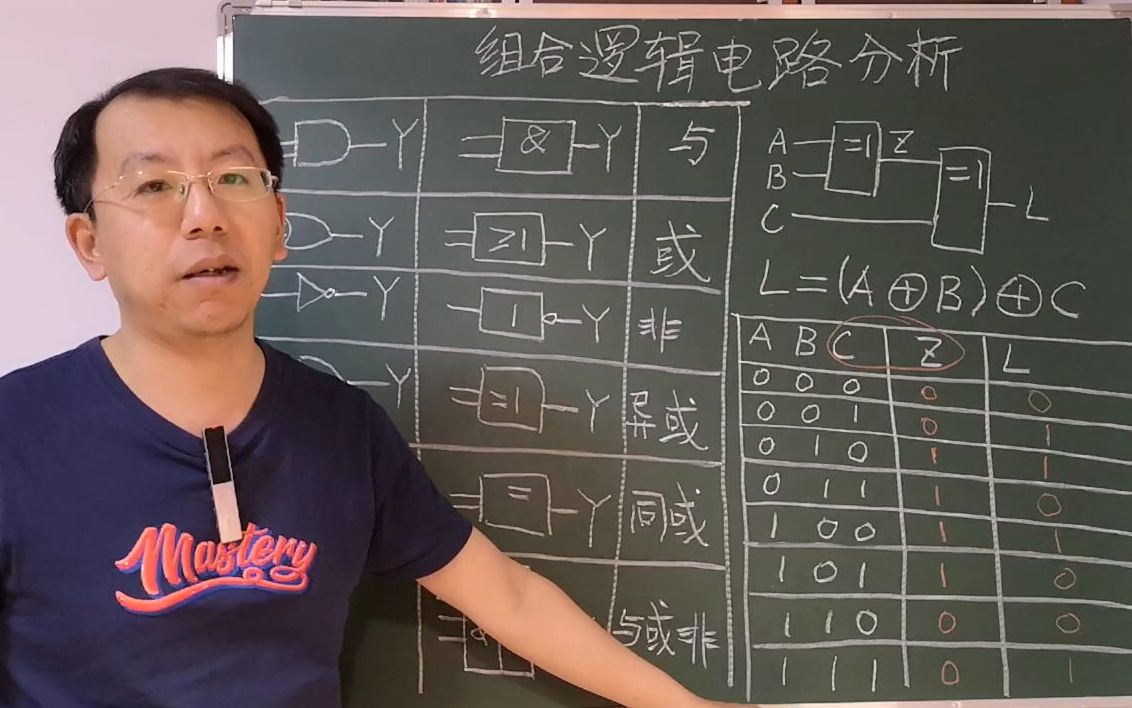 组合逻辑电路分析
Y & Y 与
Y ≥1 Y 或
Y 1 Y 非
Y =1 Y 异或
= Y 同或
& 与或非
A =1 Z
B =1 L
C
L=(A⊕B)⊕C
A B C Z L
0 0 0 0 0
0 0 1 0 1
0 1 0 1 1
0 1 1 1 0
1 0 0 1 1
1 0 1 1 0
1 1 0 0 0
1 1 1 0 1
Mastery